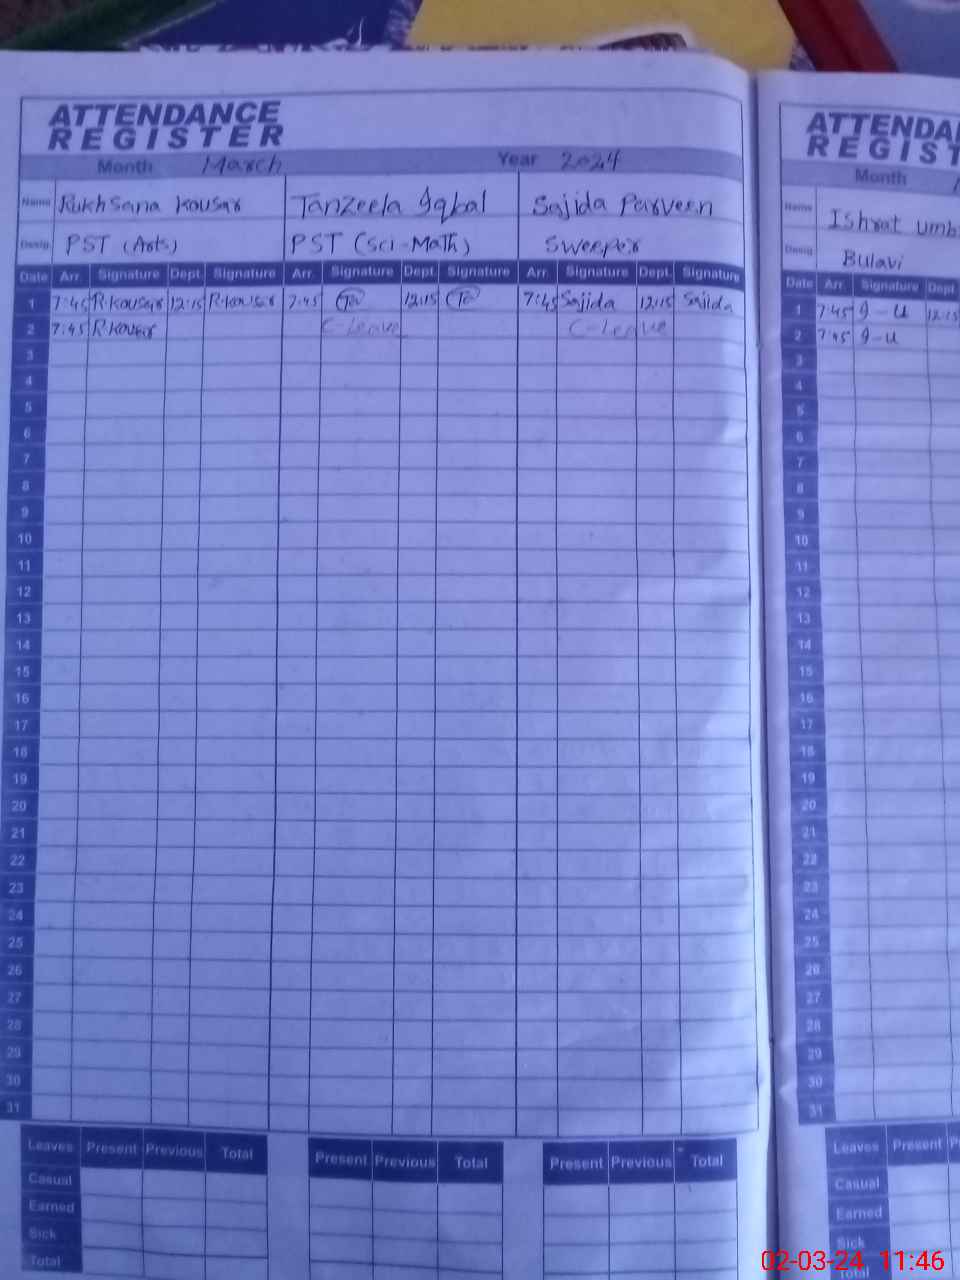 ATTENDANCE
REGISTER
Month March Year 2024
Name Rukhsana Kousar Tanzeela Iqbal Sajida Parveen
Desig. PST (Arts) PST (Sci-Math) Sweeper
Date Arr. Signature Dept. Signature Arr. Signature Dept. Signature Arr. Signature Dept. Signature
1 7:45 R.Kousar 12:15 R.Kousar 7:45 12:15 7:45 Sajida 12:15 Sajida
2 7:45 R.Kousar C-Leave C-Leave
3
4
5
6
7
8
9
10
11
12
13
14
15
16
17
18
19
20
21
22
23
24
25
26
27
28
29
30
31
Leaves Present Previous Total Present Previous Total Present Previous Total
Casual
Earned
Sick
Total
ATTENDA
REGIST
Month
Name Ishrat
Desig Bulavi
Date Arr. Signature Dept
1 7:45 I-U 12:15
2 7:45 I-U
3
4
5
6
7
8
9
10
11
12
13
14
15
16
17
18
19
20
21
22
23
24
25
26
27
28
29
30
31
Leaves Present
Casual
Earned
Sick
Total
02-03-24 11:46